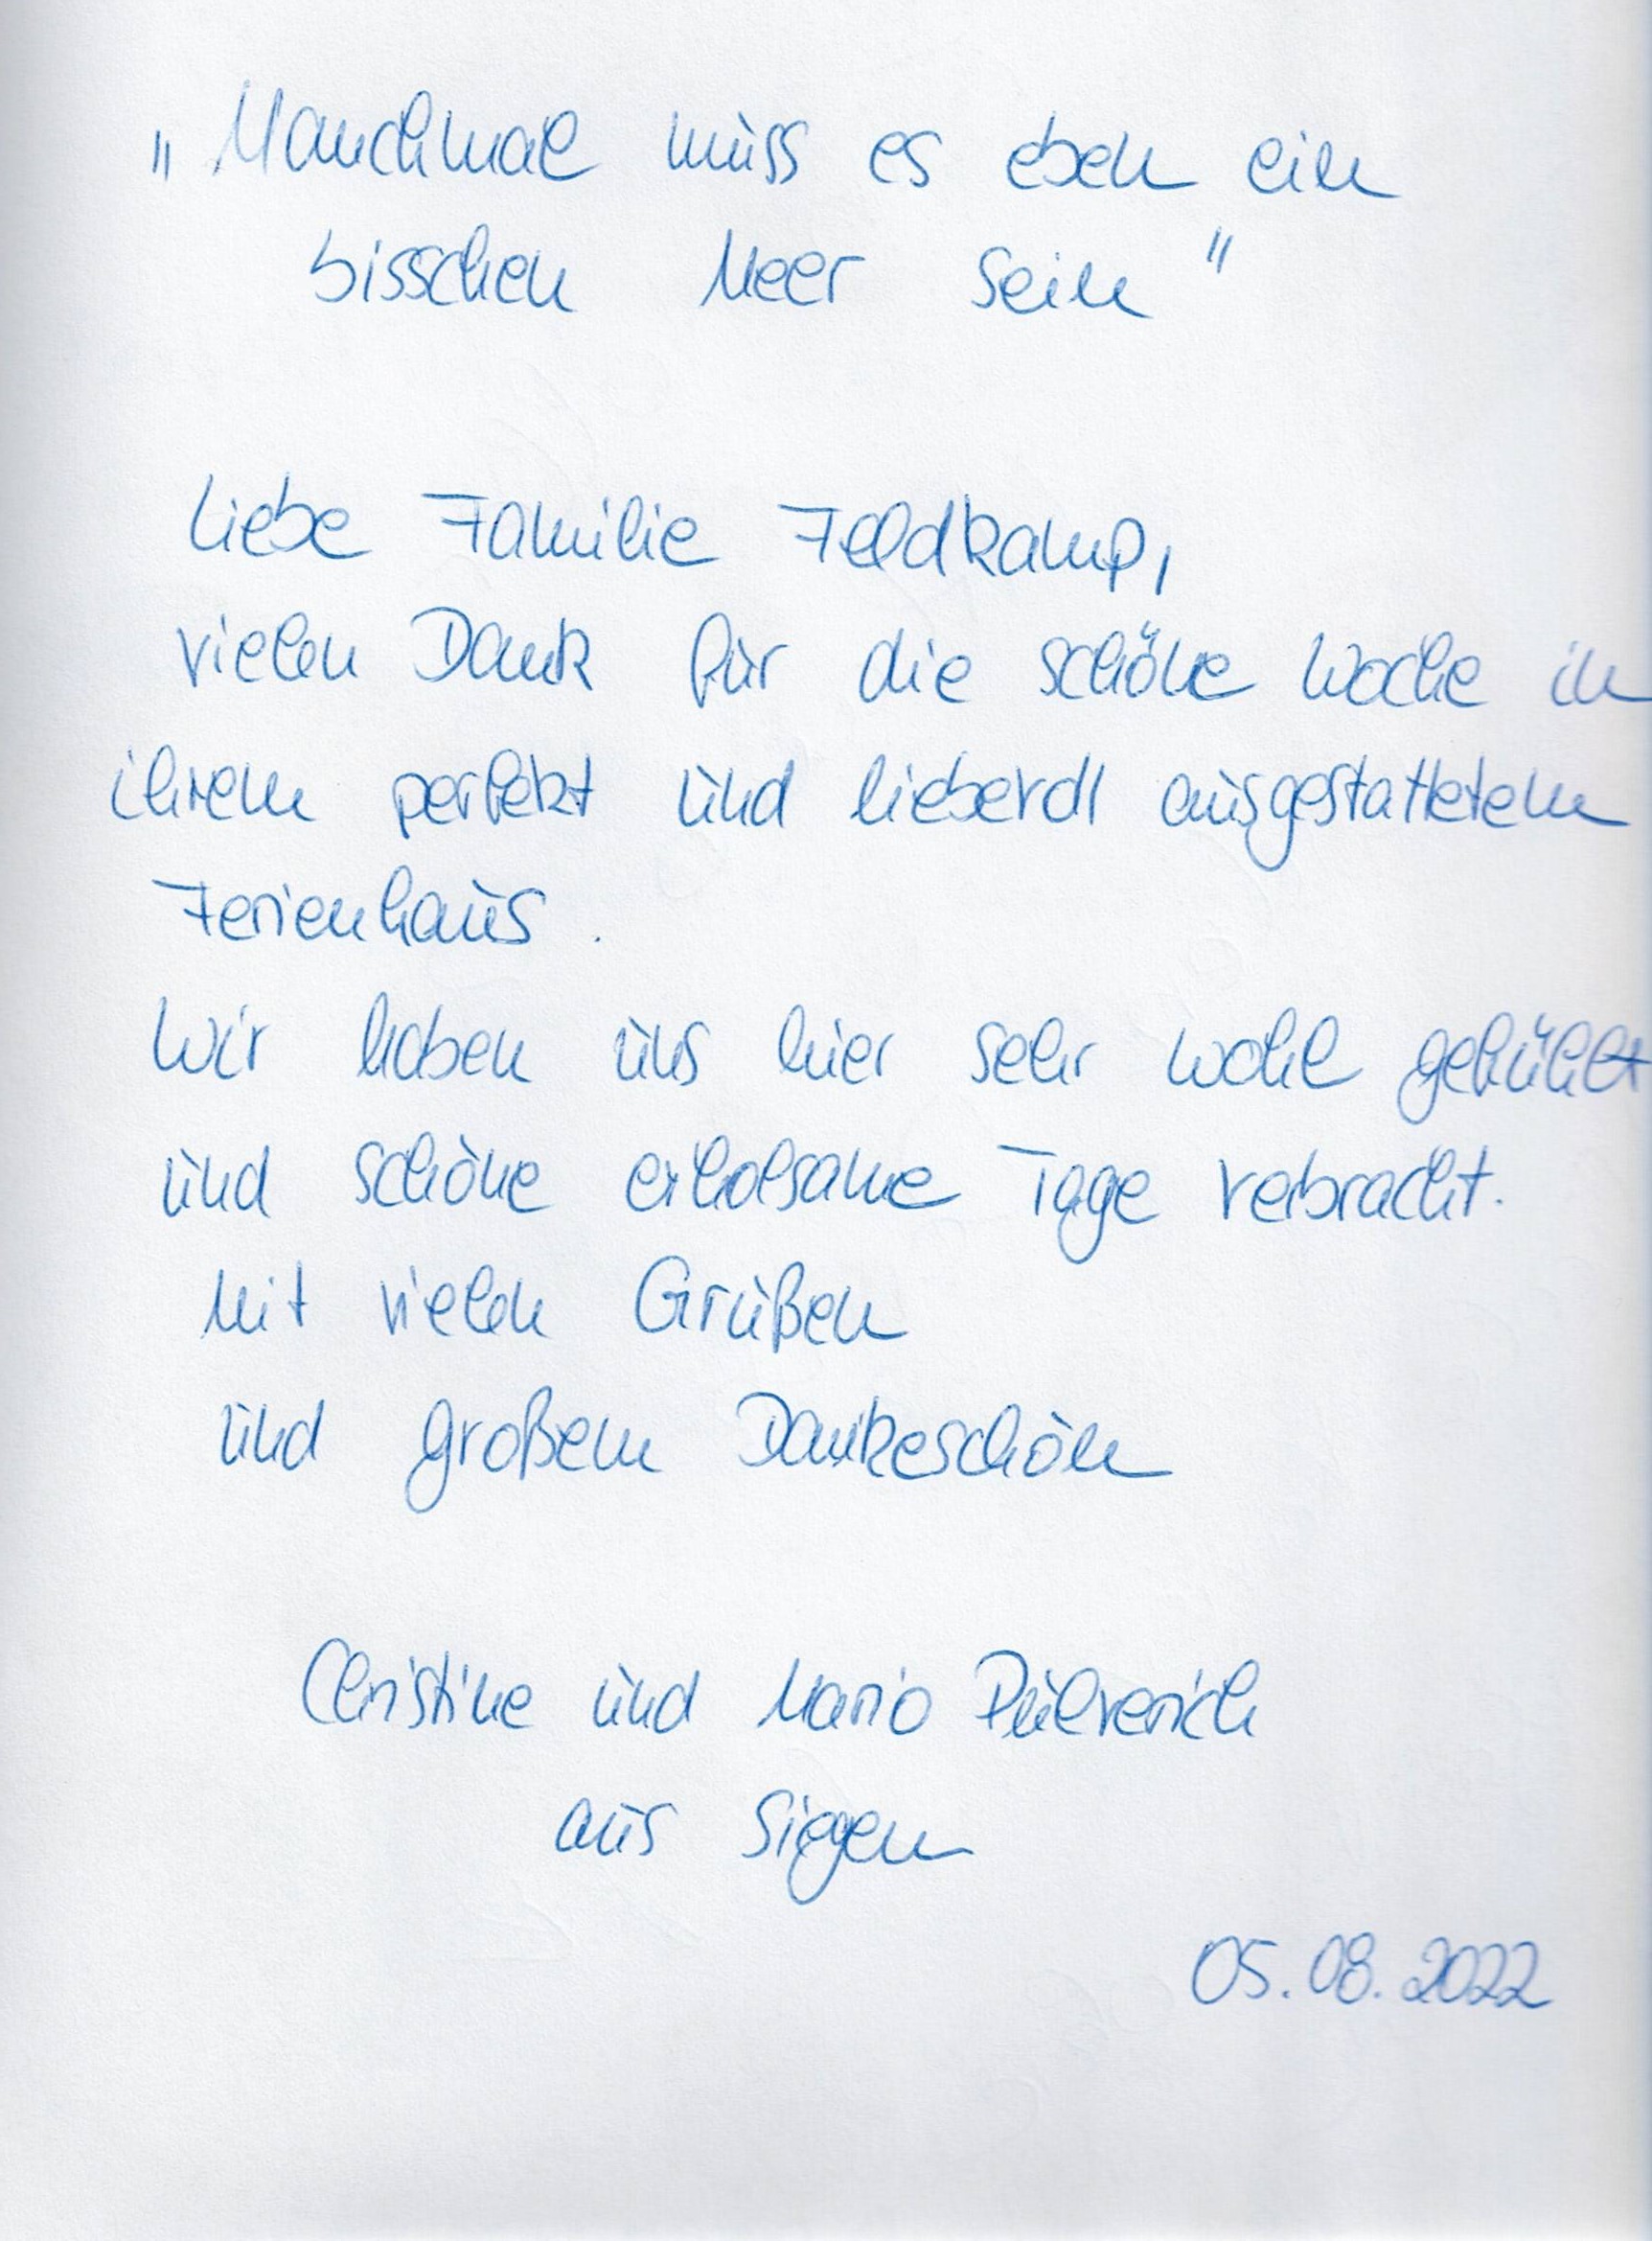 "Manchmal muss es eben ein
bisschen Meer sein"
Liebe Familie Feldkamp,
vielen Dank für die schöne Woche in
ihrem perfekt und liebevoll ausgestattetem
Ferienhaus.
Wir haben uns hier sehr wohl gefühlt
und schöne erholsame Tage verbracht.
Mit vielen Grüßen
und großem Dankeschön
Christine und Mario
aus Siegen
05.08.2022